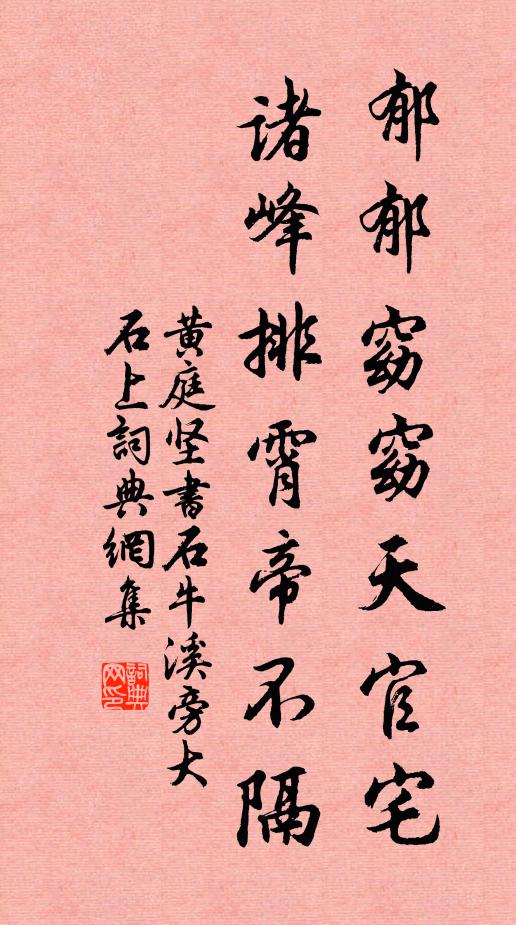 郁郁窈窈天官宅
诸峰排霄帝不隔
黄庭坚書石牛溪旁大
石上詞典網集
詞典
网印